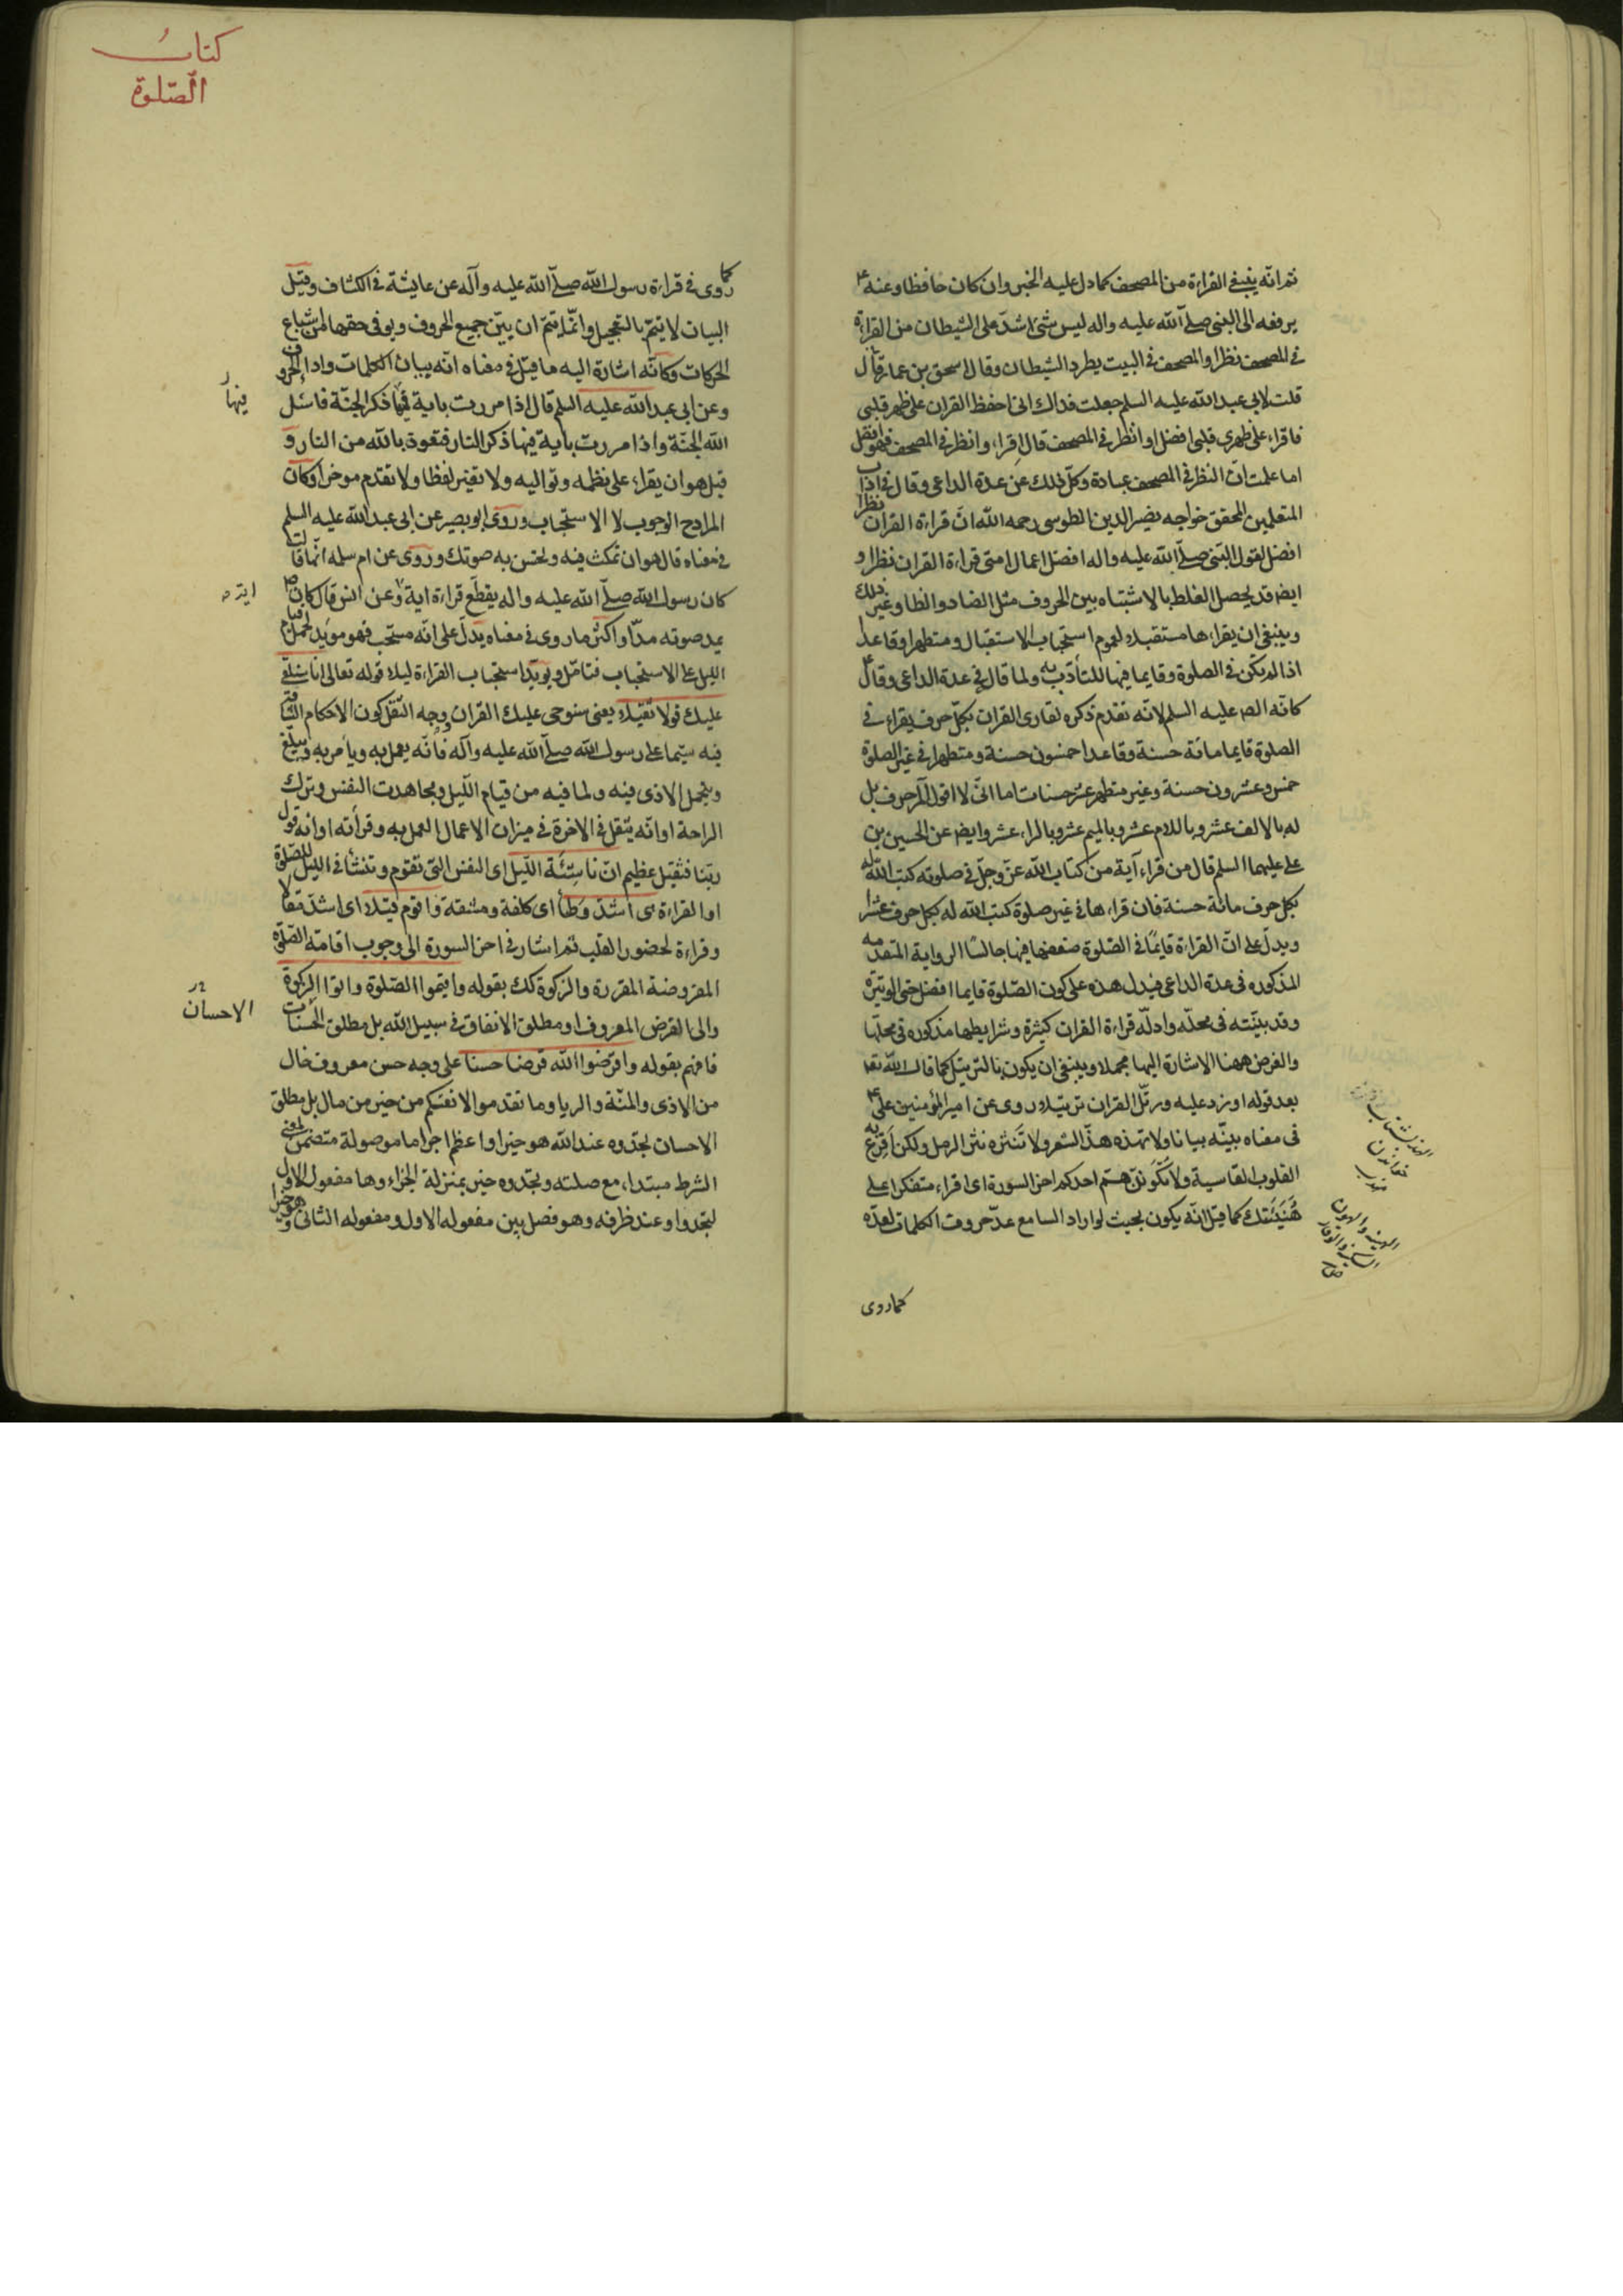 ثم انه ينبغى القراءة من المصحف كما دل عليه الخبر وان كان حافظا وعنه ع
يرفعه الى النبى صلى الله عليه واله ليس شئ اشد على الشيطان من القراءة
فى المصحف نظرا والمصحف فى البيت يطرد الشيطان وقال اسحق بن عمار قال
قلت لابى عبد الله عليه السلم جعلت فداك انى احفظ القران على ظهر قلبى
فاقراء على ظهر قلبى افضل او انظر فى المصحف قال اقراء وانظر فى المصحف فهو افضل
اما علمت ان النظر فى المصحف عبادة وكل ذلك عن عدة الداعى وقال فى اداب
المتعلمين المحقق خواجه نصير الدين الطوسى رحمه الله ان قراءة القران نظرا
افضل لقول النبى صلى الله عليه واله افضل اعمال امتى قراءة القران نظرا و
ايضا قد يحصل الغلط بالاشتباه بين الحروف مثل الضاد والظا وغير ذلك
وينبغى ان يقراءها مستقبلا لعموم استحباب الاستقبال ومتطهرا وقاعدا
اذا لم يكن فى الصلوة وقايما فيها للتأدب به ولما قال فى عدة الداعى وقال ع
كانه الص عليه السلم لانه تقدم ذكره لقارى القران بكل حرف يقراء فى
الصلوة قايما مائة حسنة وقاعدا خمسون حسنة ومتطهرا فى غير الصلوة
خمس وعشرون حسنة وغير متطهر عشر حسنات اما انى لا اقول المر حرف بل
له بالالف عشر وباللام عشر وبالميم عشر وبالراء عشر وايض عن الحسين بن
على عليهما السلم قال من قراء آية من كتاب الله عز وجل فى صلوته كتب الله له
بكل حرف مائة حسنة فان قراءها فى غير صلوة كتب الله له بكل حرف عشرا
ويدل على ان القراءة قايمًا فى الصلوة ضعفها فيها جالسًا الرواية المتقدمه
المذكوره فى عدة الداعى فيدل هذه على كون الصلوة قايما افضل حتى الوتيرة
وقد بينته فى محله وادلة قراءة القران كثيرة وشرايطها مذكوره فى محلها
والغرض ههنا الاشارة اليها مجملا وينبغى ان يكون بالترتيل كما قال الله تعا
بعد قوله او زد عليه ورتل القران ترتيلا روى عن امير المؤمنين على ع
فى معناه بينه بيانا ولا تهذه هذّ الشعر ولا تنثره نثر الرمل ولكن اقرع به
القلوب القاسية ولا تكونن هم احدكم اخر السورة اى اقراء متفكرا على
هُنَيْئَتك كما قيل انه يكون بحيث لو اراد السامع عد حروف الكلمات لعده
كما روى
كتاب
الصّلوة
كما روى فى قراءة رسول الله صلى الله عليه وآله عن عايشة فى الكشاف وقيل
البيان لا يتم بالتعجيل وانما يتم ان يبين جميع الحروف ويوفى حقها من اشباع
الحركات وكانه اشارة اليه ما قيل فى معناه انه بيان الكلمات واداء الحروف
وعن ابى عبد الله عليه السلم قال اذا مررت باية فيها ذكر الجنة فاسئل
فيها
الله الجنة واذا مررت باية فيها ذكر النار فتعوذ بالله من النار و
قيل هو ان يقراء على نظمه وتواليه ولا تغير لفظا ولا تقدم موخرا وكان
المراد ح الوجوب لا الاستحباب وروى ابو بصير عن ابى عبد الله عليه السلم
فى معناه قال هو ان تمكث فيه وتحسن به صوتك وروى عن ام سلمه انها قالت
كان رسول الله صلى الله عليه واله يقطع قراءة اية وعن انس قال كان ص
اية
يمد صوته مدّا واكثر ما روى فى معناه يدل على انه مستحب فهو مويد لحمل قيام
الليل على الاستحباب فتامل ويويد استحباب القراءة ليلا قوله تعالى انا سنلقى
عليك قولا ثقيلا يعنى سنوحى عليك القران وجه الثقل كون الاحكام الشاقة
فيه سيما على رسول الله صلى الله عليه وآله فانه يعمل به ويأمر به ويبلغ
ويتحمل الاذى فيه ولما فيه من قيام الليل ومجاهدت النفس وترك
الراحة او انه يثقل فى الاخرة فى ميزان الاعمال العمل به وقرأته او انه قول
ربنا فثقيل عظيم ان ناشئة الليل اى النفس التى تقوم وتنشأ فى الليل للصلوة
او القراءة هى اشد وطأ اى كلفة ومشقة واقوم قيلا اى اشد مقالا
وقراءة لحضور القلب ثم اشار فى اخر السورة الى وجوب اقامة الصلوة
المفروضة المقررة والزكوة كك بقوله واقيموا الصلوة واتوا الزكوة
والى القرض المعروف او مطلق الانفاق فى سبيل الله بل مطلق الحسنات
الاحسان
فافهم بقوله واقرضوا الله قرضا حسنا على وجه حسن معروف خال
من الاذى والمنة والريا وما تقدموا لانفسكم من خير من مال بل مطلق
الاحسان تجدوه عند الله هو خيرا واعظم اجرا ما موصولة متضمن لمعنى
الشرط مبتداء مع صلته وتجدوه خبر بمنزلة الجزاء وها مفعول الاول
لتجدوا وعند ظرفه وهو فصل بين مفعوله الاول ومفعوله الثانى وهو خيرا